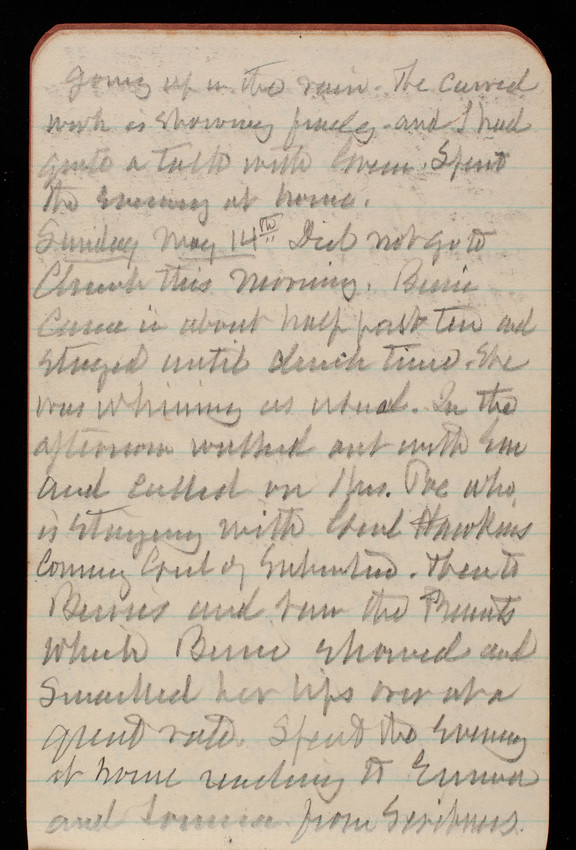 going up in the rain. The carved
work is showing finely and I had
quite a talk with Green. Spent
the evening at home.
Sunday May 14th Did not go to
Church this morning. Bessie
Came in about half past ten and
stayed until church time. She
was whining as usual. In the
afternoon walked out with Em
and called on Mrs. Poe who
is staying with Genl Hawkins
Coming Genl of Subsistence. Then to
Bessies and saw the Presents
which Bessie showed and
Smacked her lips over at a
great rate. Spent the Evening
at home reading to Emma
and from Scribners.